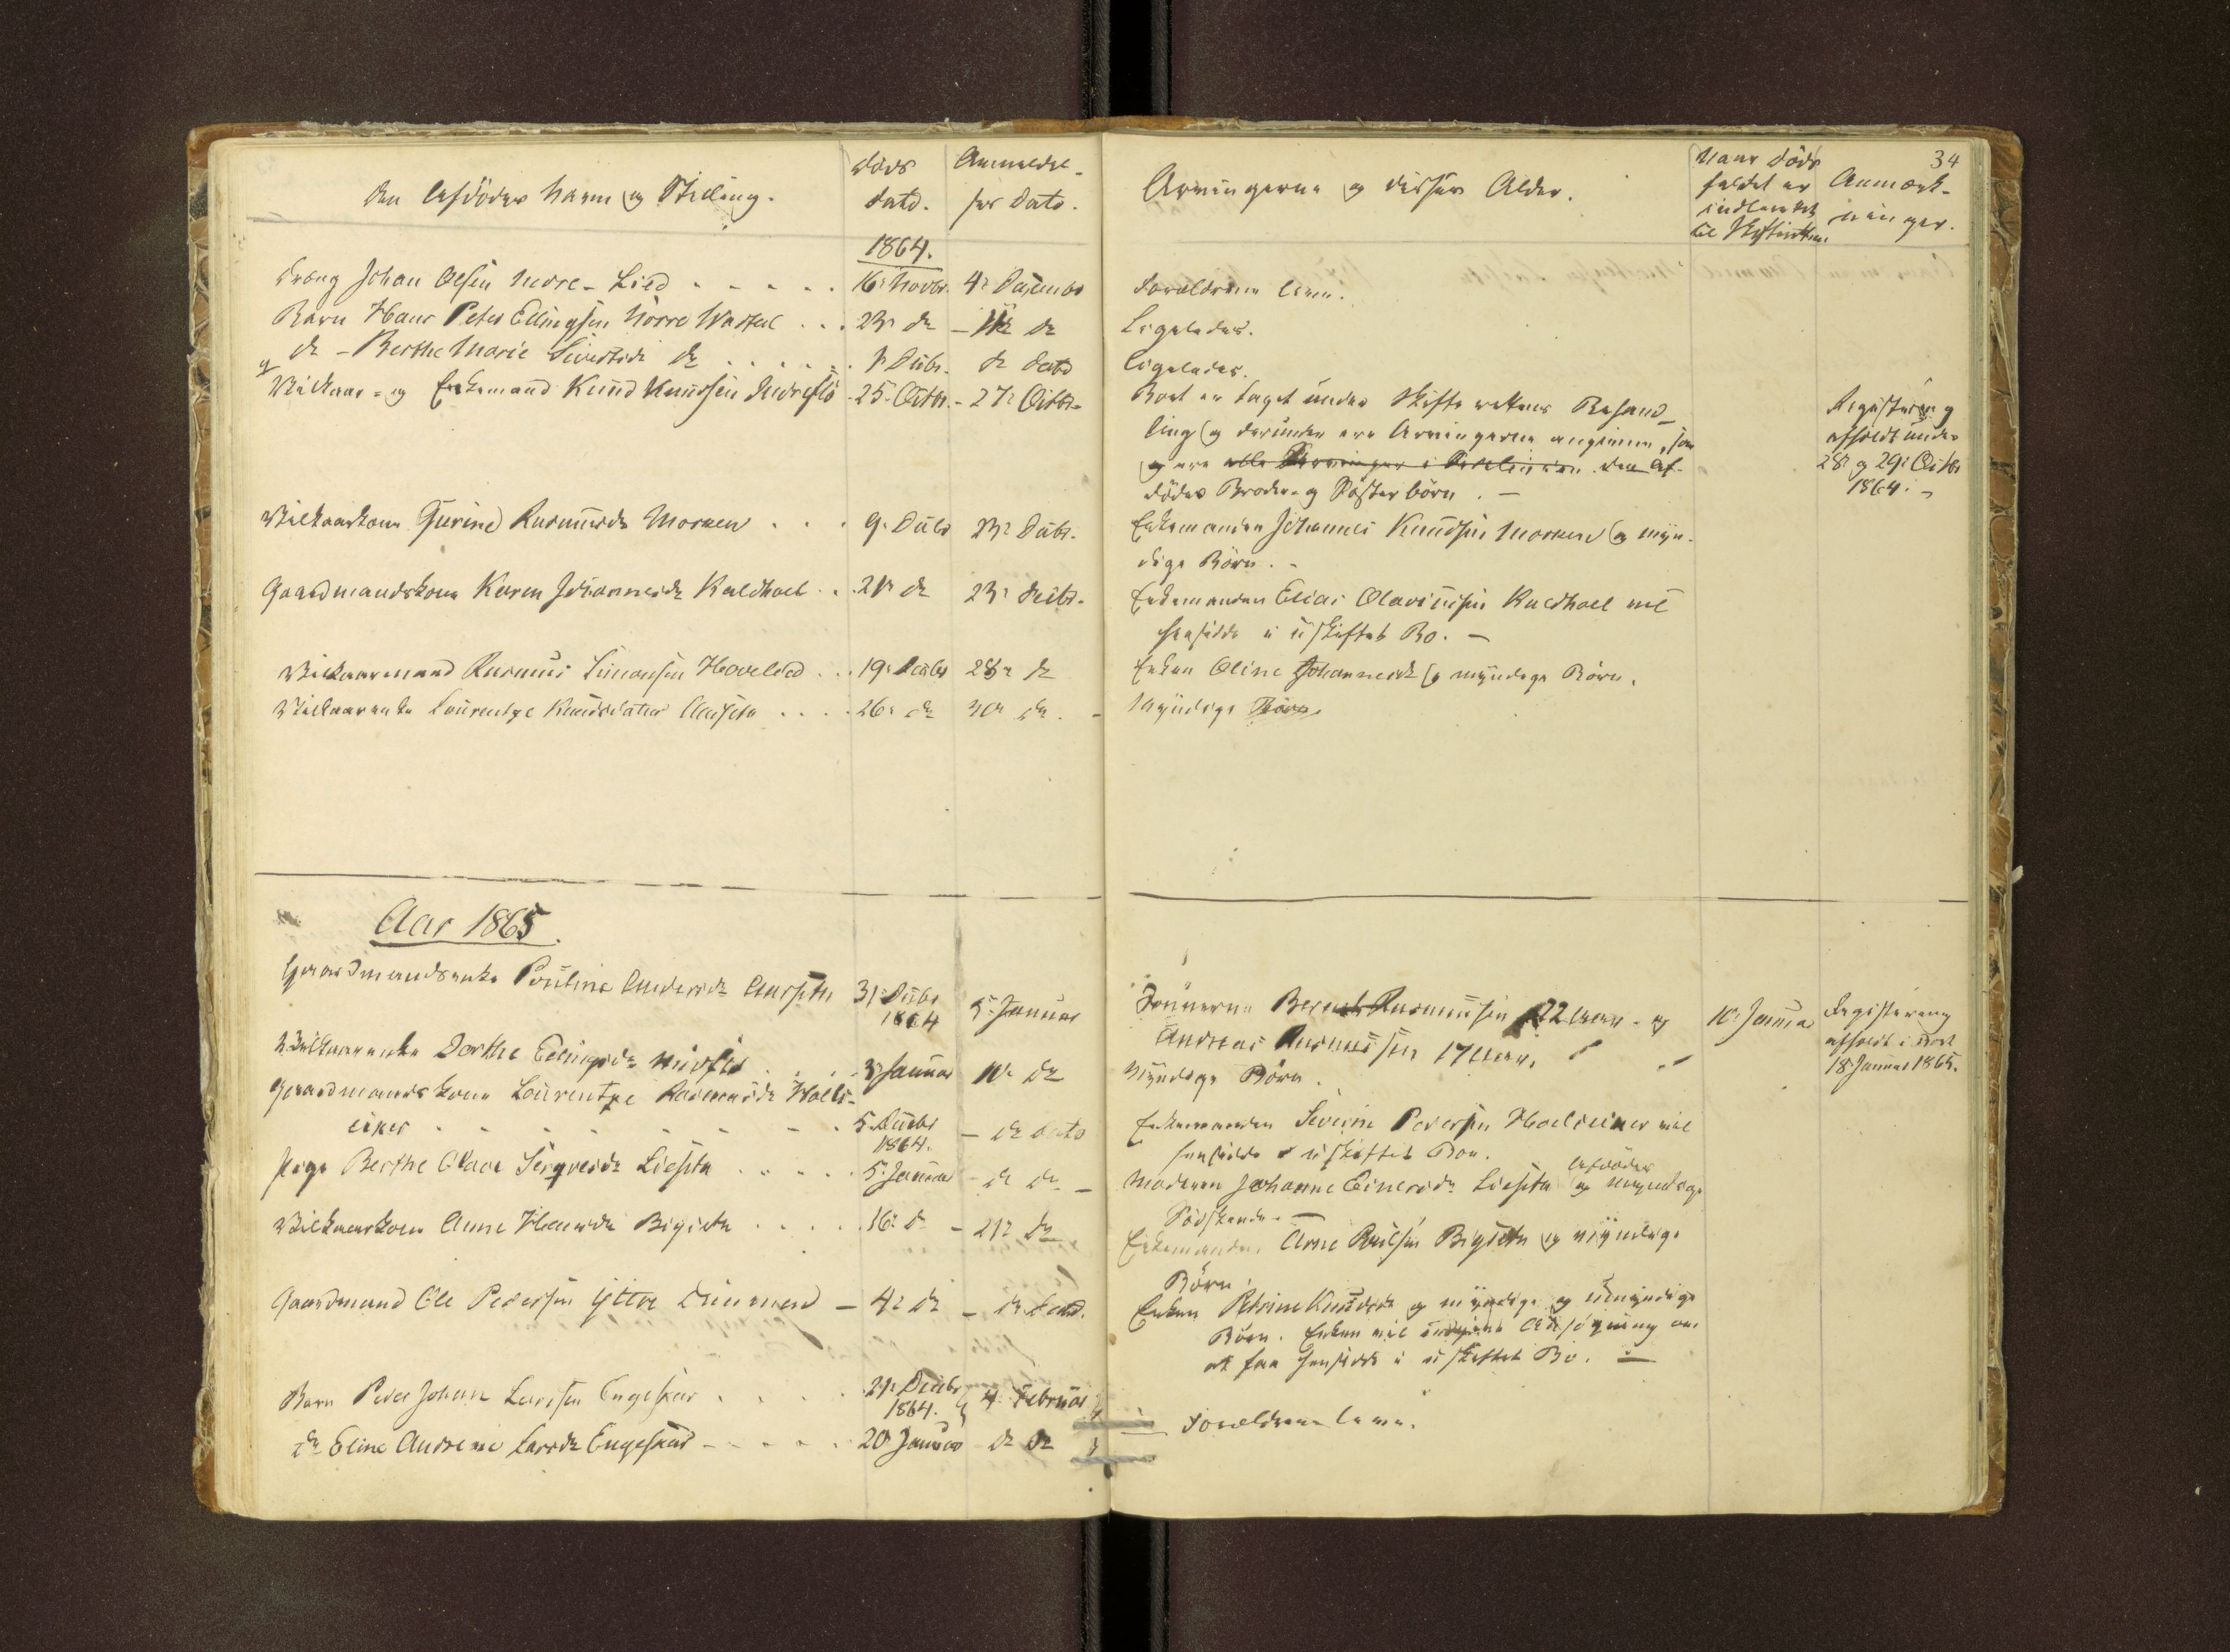 34
Den Afdødes Navn og Stilling.
Døds
Dato.
Anmeldel-
ses Dato.
Arvingerne og disses Alder.
Naar Døds
faldet er
indberettet
til Skifteretten.
Anmærk-
ninger.
1864.
Dreng Johan Olsen Nedre-Lied . . . . . 16: Novbr. 4: Decembr
Forældrene leve.
Barn Hans Peter Ellingsen Nørre Vartdal . . . 23: do — do
Ligeledes.
do - Berthe Marie Sivertsd: do . . . . . Decbr. do Dato
Ligeledes.
Vilkaar- og Enkemand Knud Knudsen Indreflø 25: Octbr. - 27: Octbr.
Boet er taget under Skifterettens Behand-
ling og derunder ere Arvingerne angivne, som
og ere alle Arvinger i den Af-
dødes Broder- og Søsterbørn. —
Registrering
afholdt under
28: og 29: Octbr
1864. -
Vilkaarkone Gurine Rasmusd: Morken . . . 9: Decbr 23: Decbr.
Enkemanden Johannes Knudsen Morken og myn-
dige Børn. -
Gaardmandskone Karen Johannesd: Kaldhoel . . 21: do 23: Decbr.
Enkemanden Elias Olavsen Kaldhoel vil
hensidde i uskiftet Bo. —
Vilkaarmand Rasmus Simonsen Hovelid . . . 19: Decbr 28: do
Enken Oline Johannesd: og myndige Børn.
Vilkaarenke Laurentze Knudsdatter Aarseth . . . . 26: do 30: do. -
Myndige Børn.
Aar 1865.
Gaardmandsenke Pouline Andersd: Aarseth 31: Decbr
1864 5: Januar
Sønnerne Bernt Rasmussen 22 Aar - og
Andreas Rasmussen 17 Aar.
10: Januar
Registrering
afholdt i Boet
18: Januar 1865.
Vilkaarenke Dorthe Ellingsd: . . . 3: Januar 10: do
Myndige Børn.
Gaardmandskone Laurentze Rasmusd: Hols-
eker . . . . . . . 5: Decbr
1864. - do Dato
Enkemanden Severin Pedersen Holseker vil
hensidde i uskiftet Boe.
Pige Berthe Olava Sivertsd: Lieseth . . . . . 5: Januar - do do -
Moderen Johanne Einersd: Lieseth og afdødes myndige
Sødskende. —
Vilkaarkone Anne Hansd: Bigseth . . . . . 16: do - 21: do
Enkemanden Arne Poulsen Bigseth og myndige
Børn.
Gaardmand Ole Pedersen Ytre - 4: do - do Dato.
Enken Petrine Knudsd: og myndige og umyndige
Børn. Enken vil indgive Ansøgning om
at faa hensidde i uskiftet Bo. —
Barn Peder Johan Larsen Engeskar . . . . 21: Decbr
1864. 4: Februar
do Eline Andrine Larsd: Engeskar - - - - . 20 Januar - do do
Forældrene leve.